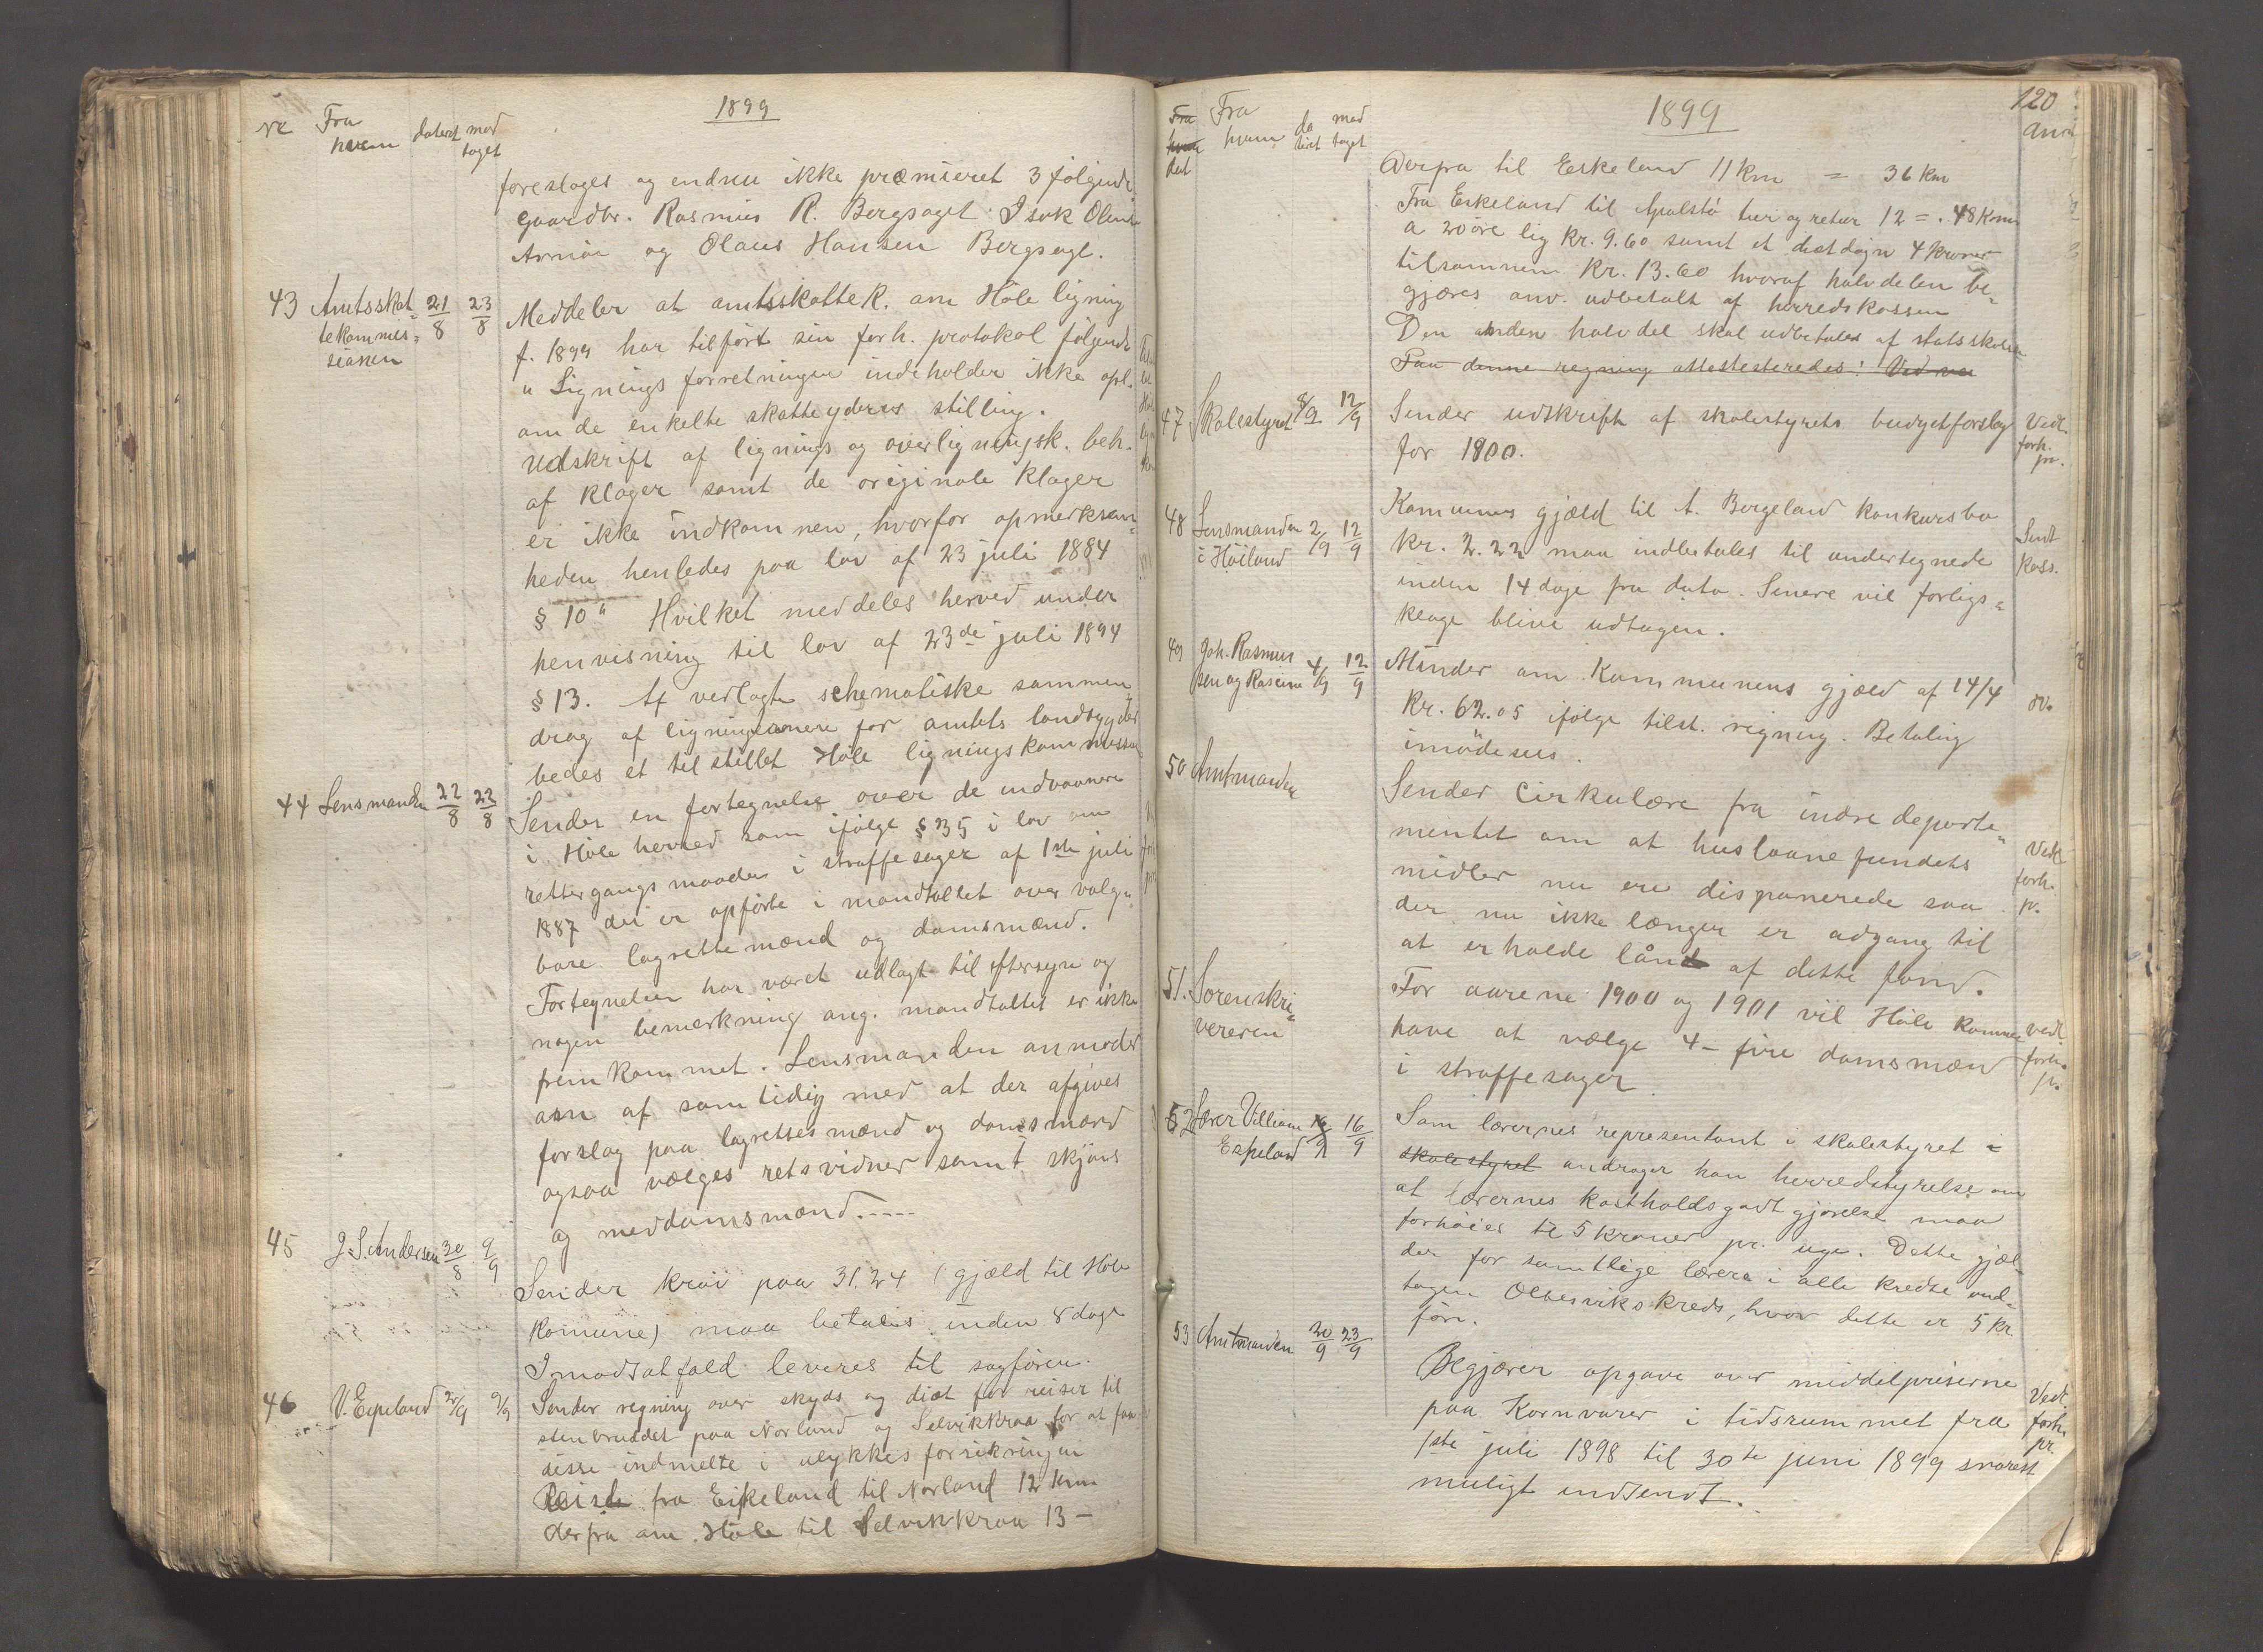 1899
Nr Fra hvem dateret modtaget
foreslages og endnu ikke præmieret 3 følgende
gaardbr. Rasmus R. Bergsaget Isak Olsen
Arnøe og Olaus Hansen Bergsagl.
43 Amtsskat= 21/8 23/8 Meddeler at amtsskatte K. om Høle ligning
tekommis= f. 1899 har tilført sin forh. protokol følgende
sionen
"Lignings forretningen indeholder ikke opl.
om de enkelte skatteyderes stilling.
Udskrift af lignings og overligningsk. beh.
af klager samt de originale klager
er ikke indkommen, hvorfor opmerksom=
heden henledes paa lov af 23 juli 1894
§ 10" Hvilket meddeles herved under
henvisning til lov af 23de juli 1894
§ 13. Af vedlagte schematiske sammen
drag af ligningerne for amtets landbygder
bedes et tilstillet Høle ligningskommission
44 Lensmanden 22/8 23/8 Sender en fortegnelse over de indvaanere
i Høle herred som ifølge § 35 i lov om
rettergangsmaaden i straffesager af 1ste juli
1887 der er opførte i mandtallet over valg=
bare lagrettemænd og domsmænd.
Fortegnelsen har været udlagt til eftersyn og
nogen bemerkning ang. mandtallet er ikke
fremkommet. Lensmanden anmoder
om af samtidig med at der afgives
forslag paa lagrettesmænd og domsmænd
ogsaa vælges retsvidner samt skjøns
og meddomsmænd.----
45 J. S. Andersen 30/8 9/9 Sender krav paa 31.24 (gjæld til Høle
Komune) maa betales inden 8 dage
I modsatfald leveres til sagføren.
46 V. Espeland 2/9 9/9 Sender regning over skyds og diæt for reiser til
stenbruddet paa Norland og Selvikkraa for at faa
disse indmelte i ulykkesforsikringen
Reiste fra Eikeland til Norland 12 Km
derfra om Høle til Selvikkraa 13 –
120
1899
Fra hvem da teret mod taget Anm
Derfra til Eskeland 11 km = 36 Km
Fra Eskeland til Apalstø tur og retur 12 = . 48 Km
a 20 øre lig Kr. 9.60 samt et diætdøgn 4 kroner
tilsammen Kr. 13.60 hvoraf halvdelen be=
gjæres anv. udbetalt af herredskassen
Den anden halvdel skal udbetales af statskassen
Paa denne regning attesteredes: Ved
47 Skolestyret 8/9 12/9 Sender udskrift af skolestyrets budgetforslag Vedt.
for 1900. forh. pr.
48 Lensmanden 2/9 12/9 Kommunes gjæld til A. Bergeland konkursbo
i Høiland Kr. 2.22 maa indbetales til undertegnede Sendt Kass.
inden 14 dage fra dato. Senere vil forligs=
klage blive udtagen.
49 Joh. Rasmus 4/9 12/9 Minder om Kommunens gjæld af 14/4
sen og Racine Kr. 62.05 ifølge tilst. regning. Betaling do.
imødesees.
50 Amtmanden Sender Cirkulære fra indre departe=
mentet om at huslaanefundets Vedt
midler nu ere disponerede saa forh.
der nu ikke længer er adgang til pr.
at erholde lån af dette fond.
51. Sorenskri= For aarene 1900 og 1901 vil Høle Komune vedt.
veren have at vælge 4 – fire domsmæn forh.
i straffesager pr.
52 Lærer Villiam 16/9 16/9 Som lærernes representant i skolestyret =
Espeland skolestyret andrager han herredstyrelse om
at lærernes kostholdsgodtgjørelse maa
forhøies til 5 kroner pr. uge. Dette gjæl=
der for samtlige lærere i alle kredse und=
tagen Oltesvikskreds, hvor dette er 5 Kr
før.
53 Amtmanden 20/9 23/9 Begjærer opgave over middelpriserne Vedt.
paa Kornvarer i tidsrummet fra forh.
1ste juli 1898 til 30te juni 1899 snarest pr.
muligt indsendt.